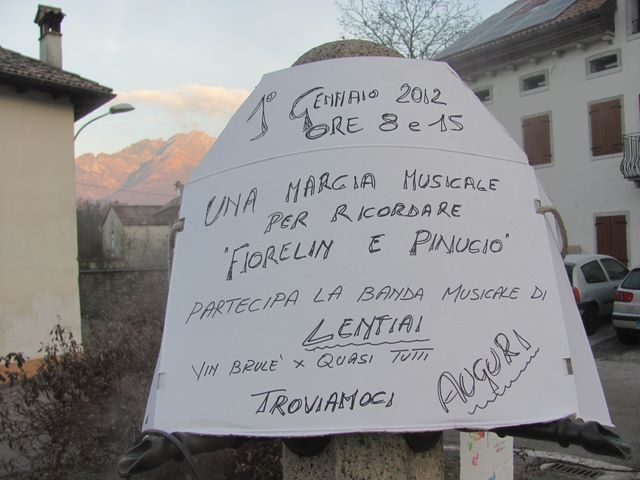 1° GENNAIO 2012
ORE 8 e 15
UNA MARCIA MUSICALE
PER RICORDARE
"FIORELIN E PINUCIO"
PARTECIPA LA BANDA MUSICALE DI
LENTIAI
VIN BRULE' x QUASI TUTTI
TROVIAMOCI
AUGURI